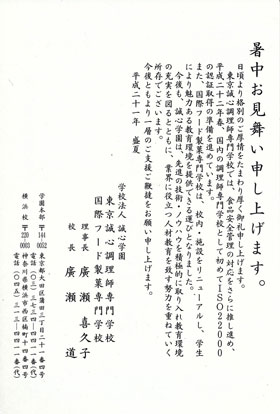 暑中お見舞い申し上げます。
日頃より格別のご厚情をたまわり厚く御礼申し上げます。
東京誠心調理師専門学校では、食品安全管理の対応をさらに推し進め、
平成二十二年春、国内の調理師専門学校として初めてISO22000
の認証取得の準備を進めています。
また、国際フード製菓専門学校は、校内・施設をリニューアルし、学生
により魅力ある教育環境を提供できる運びとなりました。
今後も、誠心学園は、先進の技術・ノウハウを積極的に取り入れ教育環境
の充実を図るとともに、業界に役立つ人材教育を致す努力を重ねていく
所存でございます。
今後ともより一層のご支援ご鞭撻をお願い申し上げます。
平成二十一年 盛夏
学校法人 誠心学園
東京誠心調理師専門学校
国際フード製菓専門学校
理事長 廣瀬喜久子
校長 廣瀬 道
学園本部 〒144-0052
東京都大田区蒲田
横浜校 〒220-0003
神奈川県横浜市西区楠町十四番地